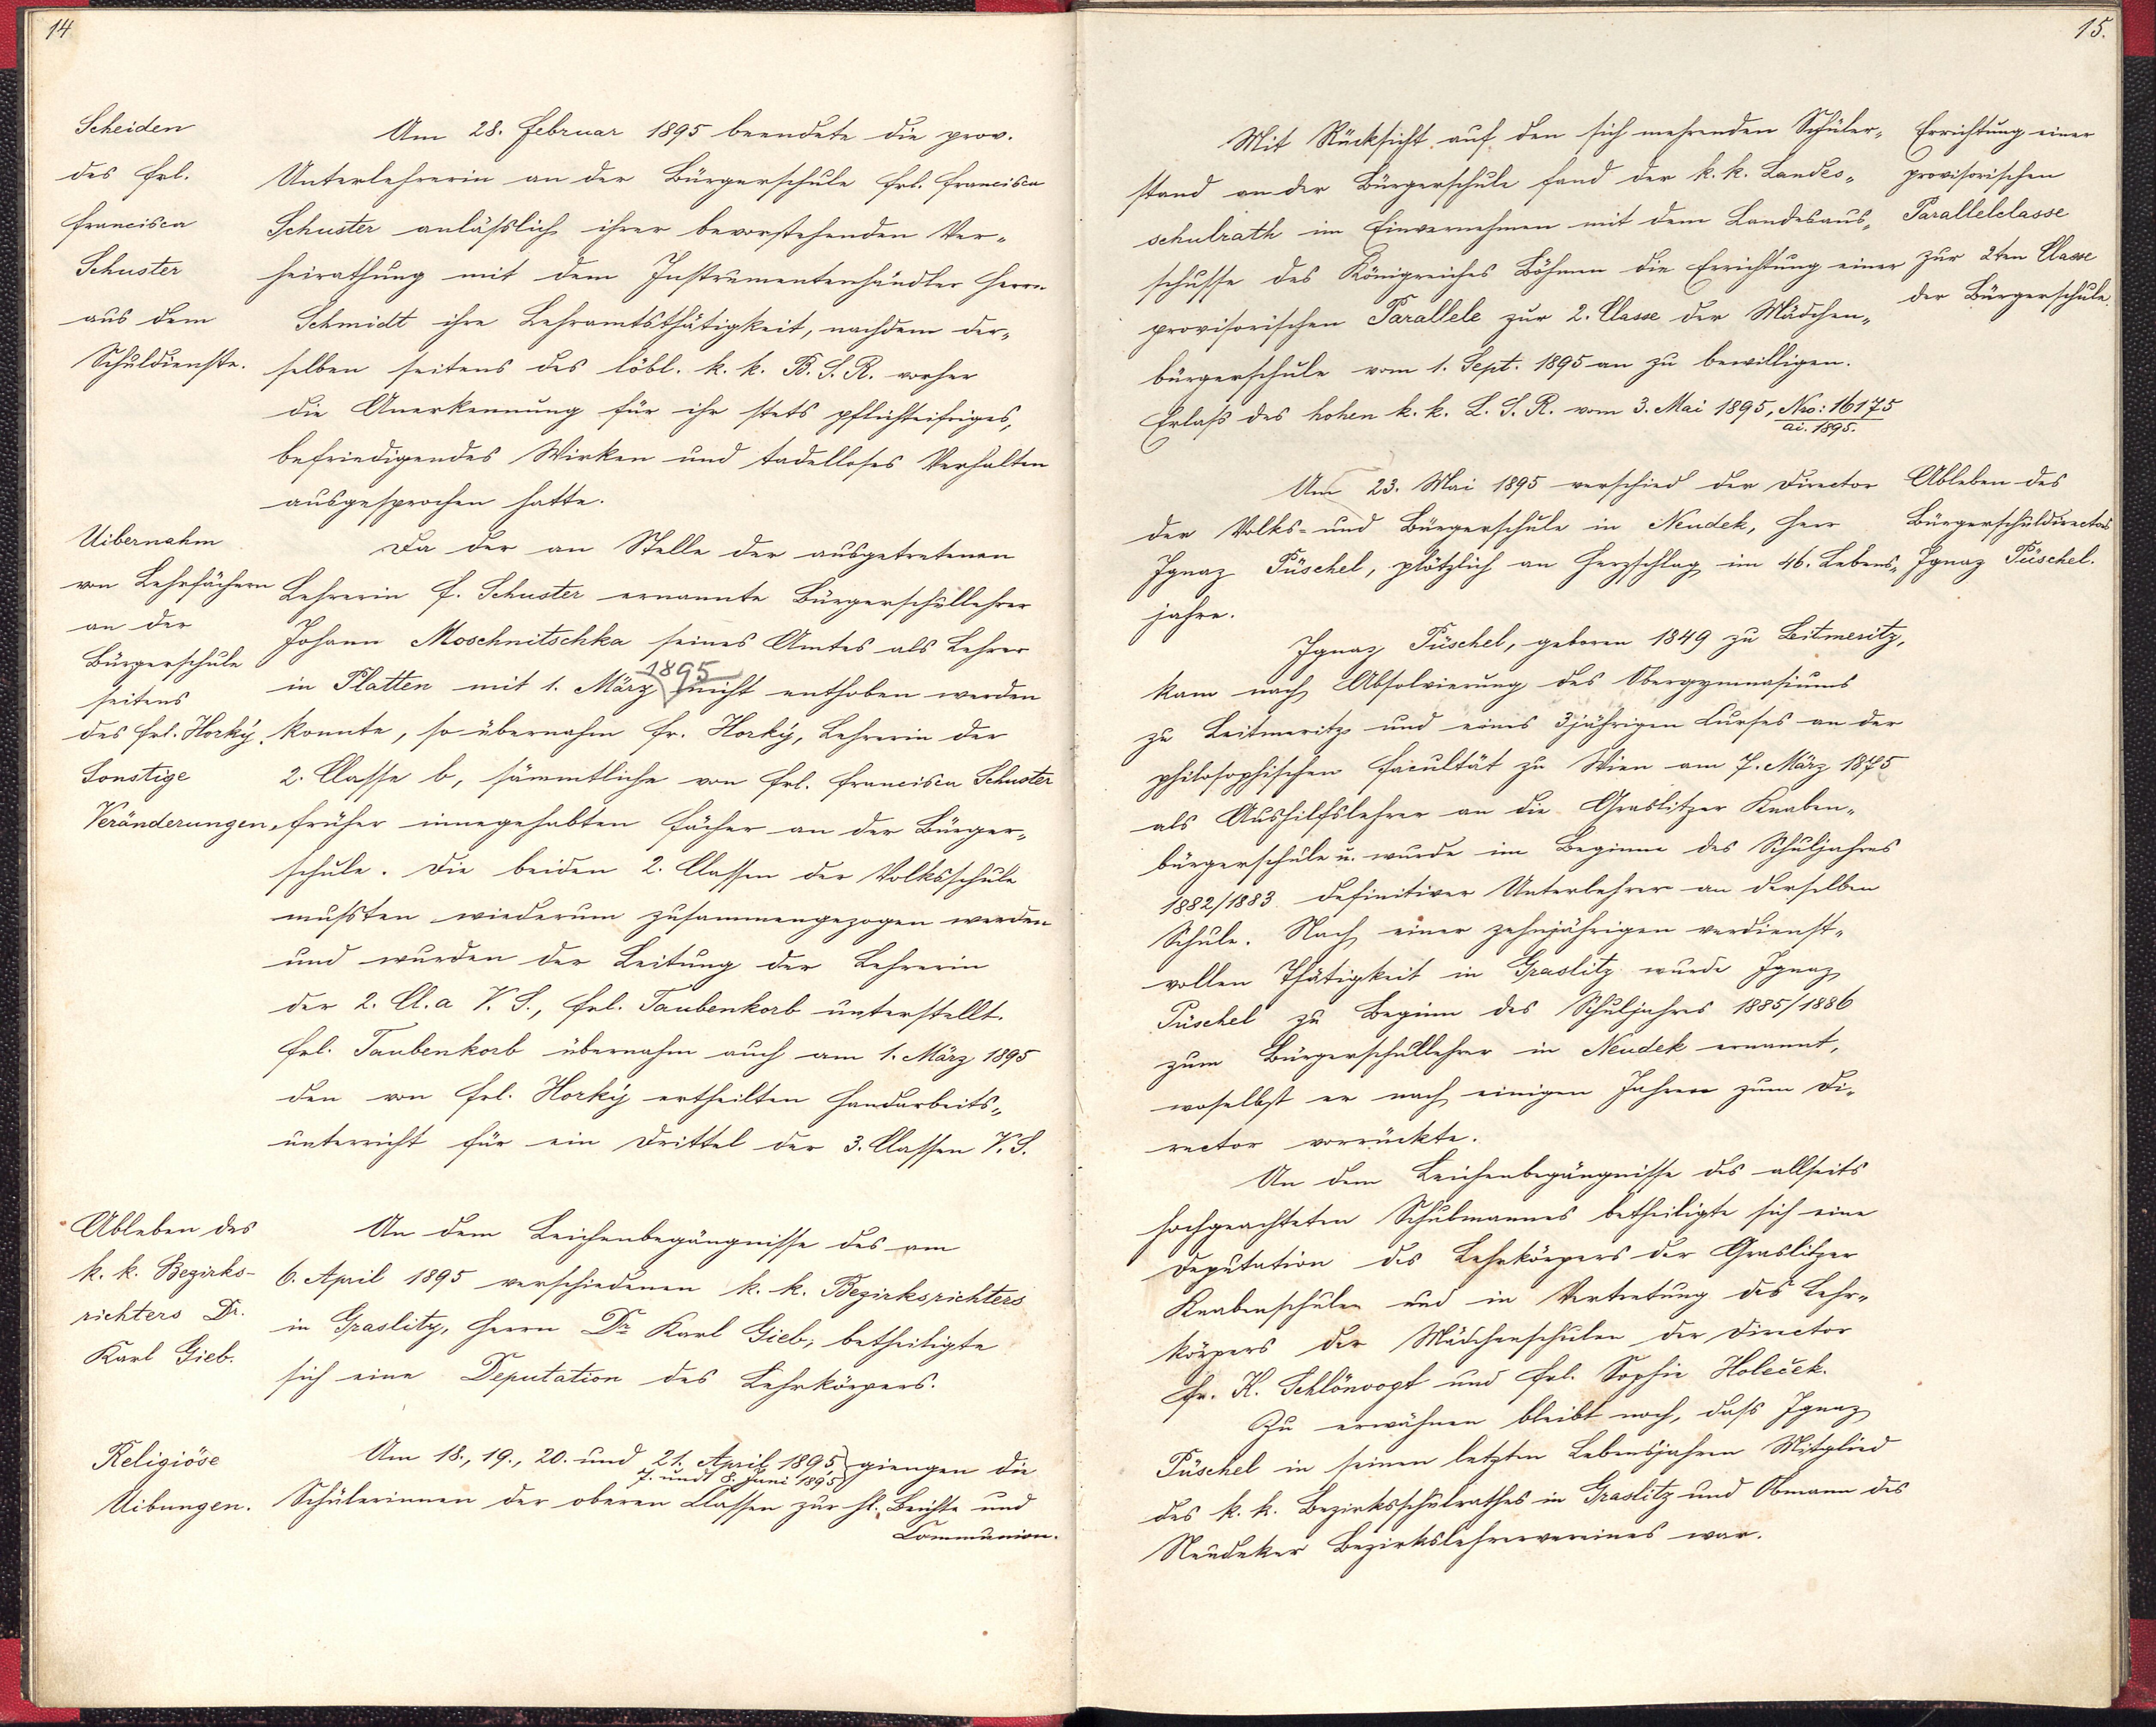 14
Scheiden
des Frl.
Francisca
Schuster
aus dem
Schuldienste.
Am 28. Februar 1895 beendete die prov.
Unterlehrerin an der Bürgerschule Frl. Francisca
Schuster anläßlich ihrer bevorstehenden Ver-
heirathung mit dem Instrumentenhändler Herrn
Schmidt ihre Lehramtsthätigkeit, nachdem der-
selben seitens des löbl. k. k. B. S. R. vorher
die Anerkennung für ihr stets pflichteifriges,
befriedigendes Wirken und tadelloses Verhalten
ausgesprochen hatte.
Uibernahm
von Lehrfächern
an der
Bürgerschule
seitens
des Frl. Horký.
Sonstige
Veränderungen.
Da der an Stelle der ausgetretenen
Lehrerin F. Schuster ernannte Bürgerschullehrer
Johann Moschnitschka seines Amtes als Lehrer
1895
in Platten mit 1. März nicht enthoben werden
konnte, so übernahm Fr. Horký, Lehrerin der
2. Classe b, sämmtliche von Frl. Francisca Schuster
früher innegehabten Fächer an der Bürger-
schule. Die beiden 2. Classen der Volksschule
mußten wiederum zusammengezogen werden
und wurden der Leitung der Lehrerin
der 2. Cl. a V. S., Frl. Taubenkorb unterstellt.
Frl. Taubenkorb übernahm auch am 1. März 1895
den von Frl. Horký ertheilten Handarbeits-
unterricht für ein Drittel der 3. Classen V. S.
Ableben des
k. k. Bezirks-
richters Dr.
Karl Gieb.
An dem Leichenbegängnisse des am
6. April 1895 verschiedenen k. k. Bezirksrichters
in Graslitz, Herrn Dr. Karl Gieb, betheiligte
sich eine Deputation des Lehrkörpers.
Religiöse
Uibungen.
Am 18., 19., 20. und 21. April 1895 giengen die
7. und 8. Juni 1895
Schülerinnen der oberen Classen zur hl. Beichte und
Communion.
15.
Mit Rücksicht auf den sich mehrenden Schüler-
stand an der Bürgerschule fand der k. k. Landes-
schulrath im Einvernehmen mit dem Landesaus-
schusse des Königreiches Böhmen die Errichtung einer
provisorischen Parallele zur 2. Classe der Mädchen-
bürgerschule vom 1. Sept. 1895 an zu bewilligen.
Erlaß des hohen k. k. L. S. R. vom 3. Mai 1895, Nro: 16175
ai. 1895.
Errichtung einer
provisorischen
Parallelclasse
zur 2ten Classe
der Bürgerschule.
Am 23. Mai 1895 verschied der Director
der Volks- und Bürgerschule in Neudek, Herr
Ignaz Püschel, plötzlich an Herzschlag im 46. Lebens-
jahre.
Ableben des
Bürgerschuldirectors
Ignaz Püschel.
Ignaz Püschel, geboren 1849 zu Leitmeritz,
kam nach Absolvierung des Obergymnasiums
zu Leitmeritz und eines 3jährigen Curses an der
philosophischen Facultät zu Wien am 7. März 1875
als Aushilfslehrer an die Graslitzer Knaben-
bürgerschule u. wurde im Beginne des Schuljahres
1882/1883 definitiver Unterlehrer an derselben
Schule. Nach einer zehnjährigen verdienst-
vollen Thätigkeit in Graslitz wurde Ignaz
Püschel zu Beginn des Schuljahres 1885/1886
zum Bürgerschullehrer in Neudek ernannt,
woselbst er nach einigen Jahren zum Di-
rector vorrückte.
An dem Leichenbegängnisse des allseits
hochgeachteten Schulmannes betheiligte sich eine
Deputation des Lehrkörpers der Graslitzer
Knabenschulen und in Vertretung des Lehr-
körpers der Mädchenschulen der Director
Fr. K. Schlönvogt und Frl. Sophie Holeček.
Zu erwähnen bleibt noch, daß Ignaz
Püschel in seinen letzten Lebensjahren Mitglied
des k. k. Bezirksschulrathes in Graslitz und Obmann des
Neudeker Bezirkslehrervereines war.